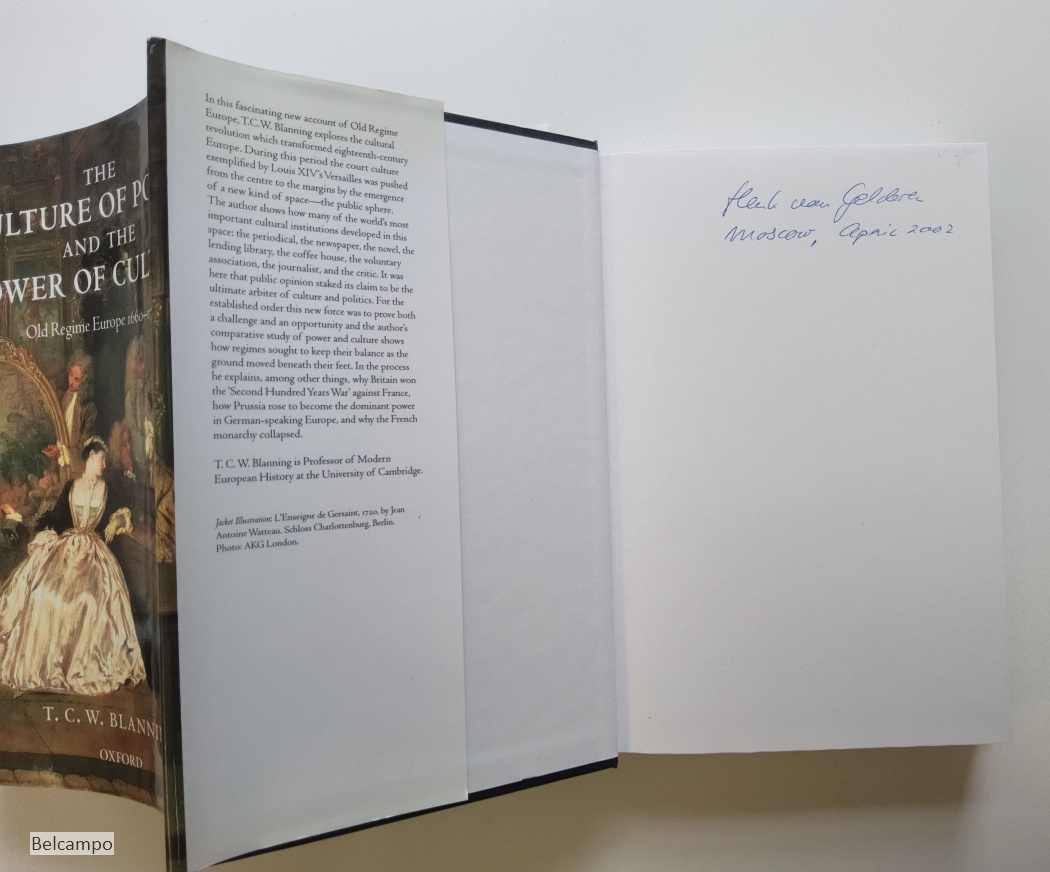 THE
ULTURE OF PO
AND THE
OWER OF CUL
Old Regime Europe 1660–1
T. C. W. BLANNI
OXFORD
In this fascinating new account of Old Regime
Europe, T.C.W. Blanning explores the cultural
revolution which transformed eighteenth-century
Europe. During this period the court culture
exemplified by Louis XIV's Versailles was pushed
from the centre to the margins by the emergence
of a new kind of space—the public sphere.
The author shows how many of the world's most
important cultural institutions developed in this
space: the periodical, the newspaper, the novel, the
lending library, the coffee house, the voluntary
association, the journalist, and the critic. It was
here that public opinion staked its claim to be the
ultimate arbiter of culture and politics. For the
established order this new force was to prove both
a challenge and an opportunity and the author's
comparative study of power and culture shows
how regimes sought to keep their balance as the
ground moved beneath their feet. In the process
he explains, among other things, why Britain won
the 'Second Hundred Years War' against France,
how Prussia rose to become the dominant power
in German-speaking Europe, and why the French
monarchy collapsed.
T. C. W. Blanning is Professor of Modern
European History at the University of Cambridge.
Jacket Illustration: L'Enseigne de Gersaint, 1720, by Jean
Antoine Watteau. Schloss Charlottenburg, Berlin.
Photo: AKG London.
Henk van Gelderen
Moscow, April 2002
Belcampo